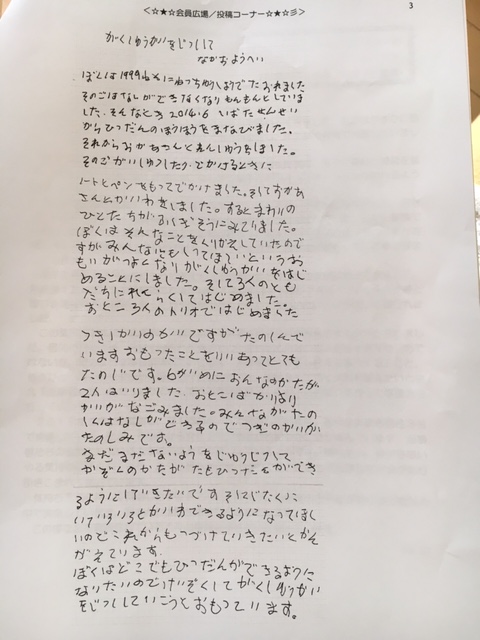 <☆★☆会員広場／投稿コーナー☆★☆彡>
3
がくしゅうかいをじっしして
なかおようへい
ぼくは1999ねんにねっちゅうしょうでたおれました
そのごはなしができなくなりもんもんとしていま
した。そんなとき2014.6 いばたせんせい
からひつだんのほうほうをまなびました。
それからおかあさんとれんしゅうをしました。
そのごがいしゅつしたり、でかけるときに
ノートとペンをもってでかけました。そしておかあ
さんとかいわをしました。するとまわりの
ひとたちがふしぎそうにみていました。
ぼくはそんなことをくりかえしていたので
すがみんなにもしってほしいというお
もいがつよくなりがくしゅうかいをはじ
めることにしました。そして3人のとも
だちにれんらくしてはじめました。
おとこ3人のトリオではじめました
つき1かいのかいですがたのしんで
いますおもったことをいいあってとても
たのしいです。6かいめにおんなのかたが
2人はいりました。おとこばかりより
かいがなごみました。みんながたの
しくはなしができるのでつぎのかいが
たのしみです。
まだまだないようをじゅうじつして
かぞくのかたがたもひつだんができ
るようにしていきたいです
いけいろいろとかいわできるようになってほし
いのでこれからもつづけていきたいとかん
がえています。
ぼくはどこでもひつだんができるように
なりたいのでけいぞくしてがくしゅうかい
をじっししていこうとおもっています。